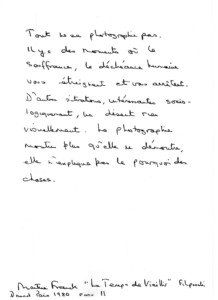 Tout ne se photographie pas.
Il y a des moments où la
souffrance, la déchéance humaine
vous étreignent et vous arrêtent.
D'autres situations, intéressantes socio-
logiquement, se disent mal
visuellement. La photographie
montre plus qu'elle ne démontre,
elle n'explique pas le pourquoi des
choses.
Martine Franck "Le Temps de Vieillir" Filipacchi
Denoël Paris 1980 page 11